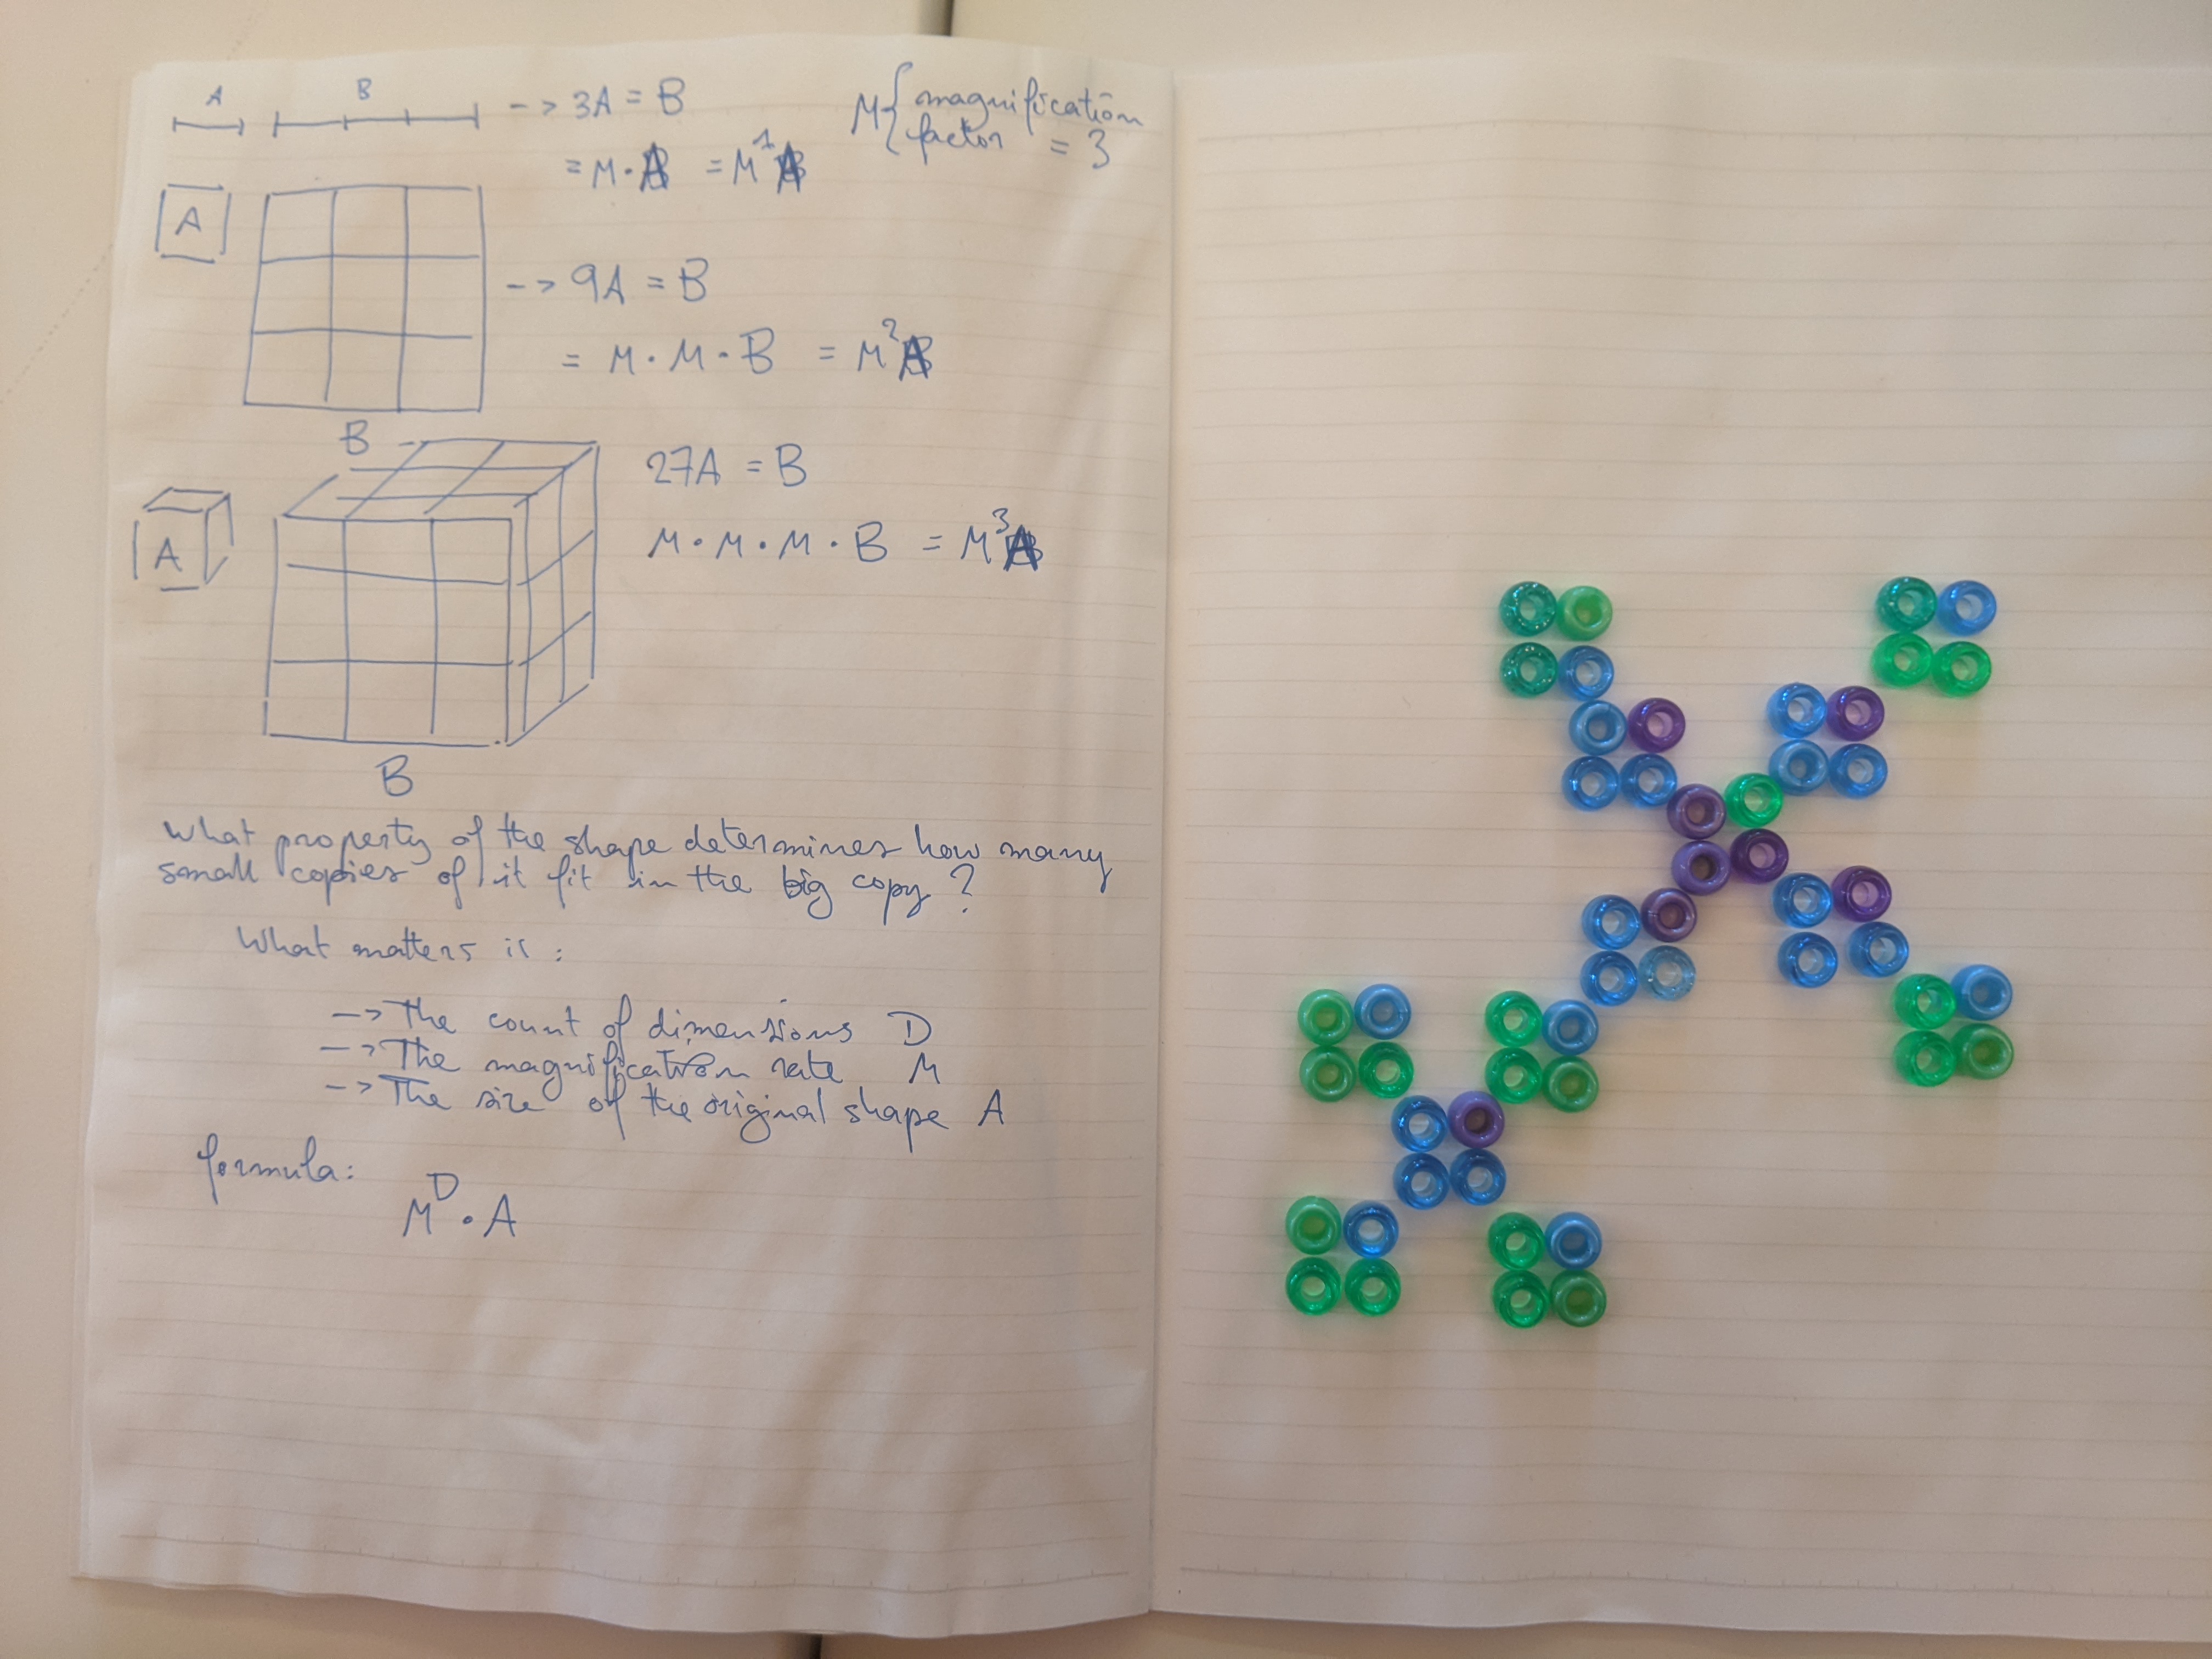 A B -> 3A = B
M { magnification
factor = 3
= M · A = M¹A
A
-> 9A = B
= M · M · B = M²A
B
27A = B
A
M · M · M · B = M³A
B
What property of the shape determines how many
small copies of it fit in the big copy ?
What matters is :
-> The count of dimensions D
-> The magnification rate M
-> The size of the original shape A
formula:
M^D · A